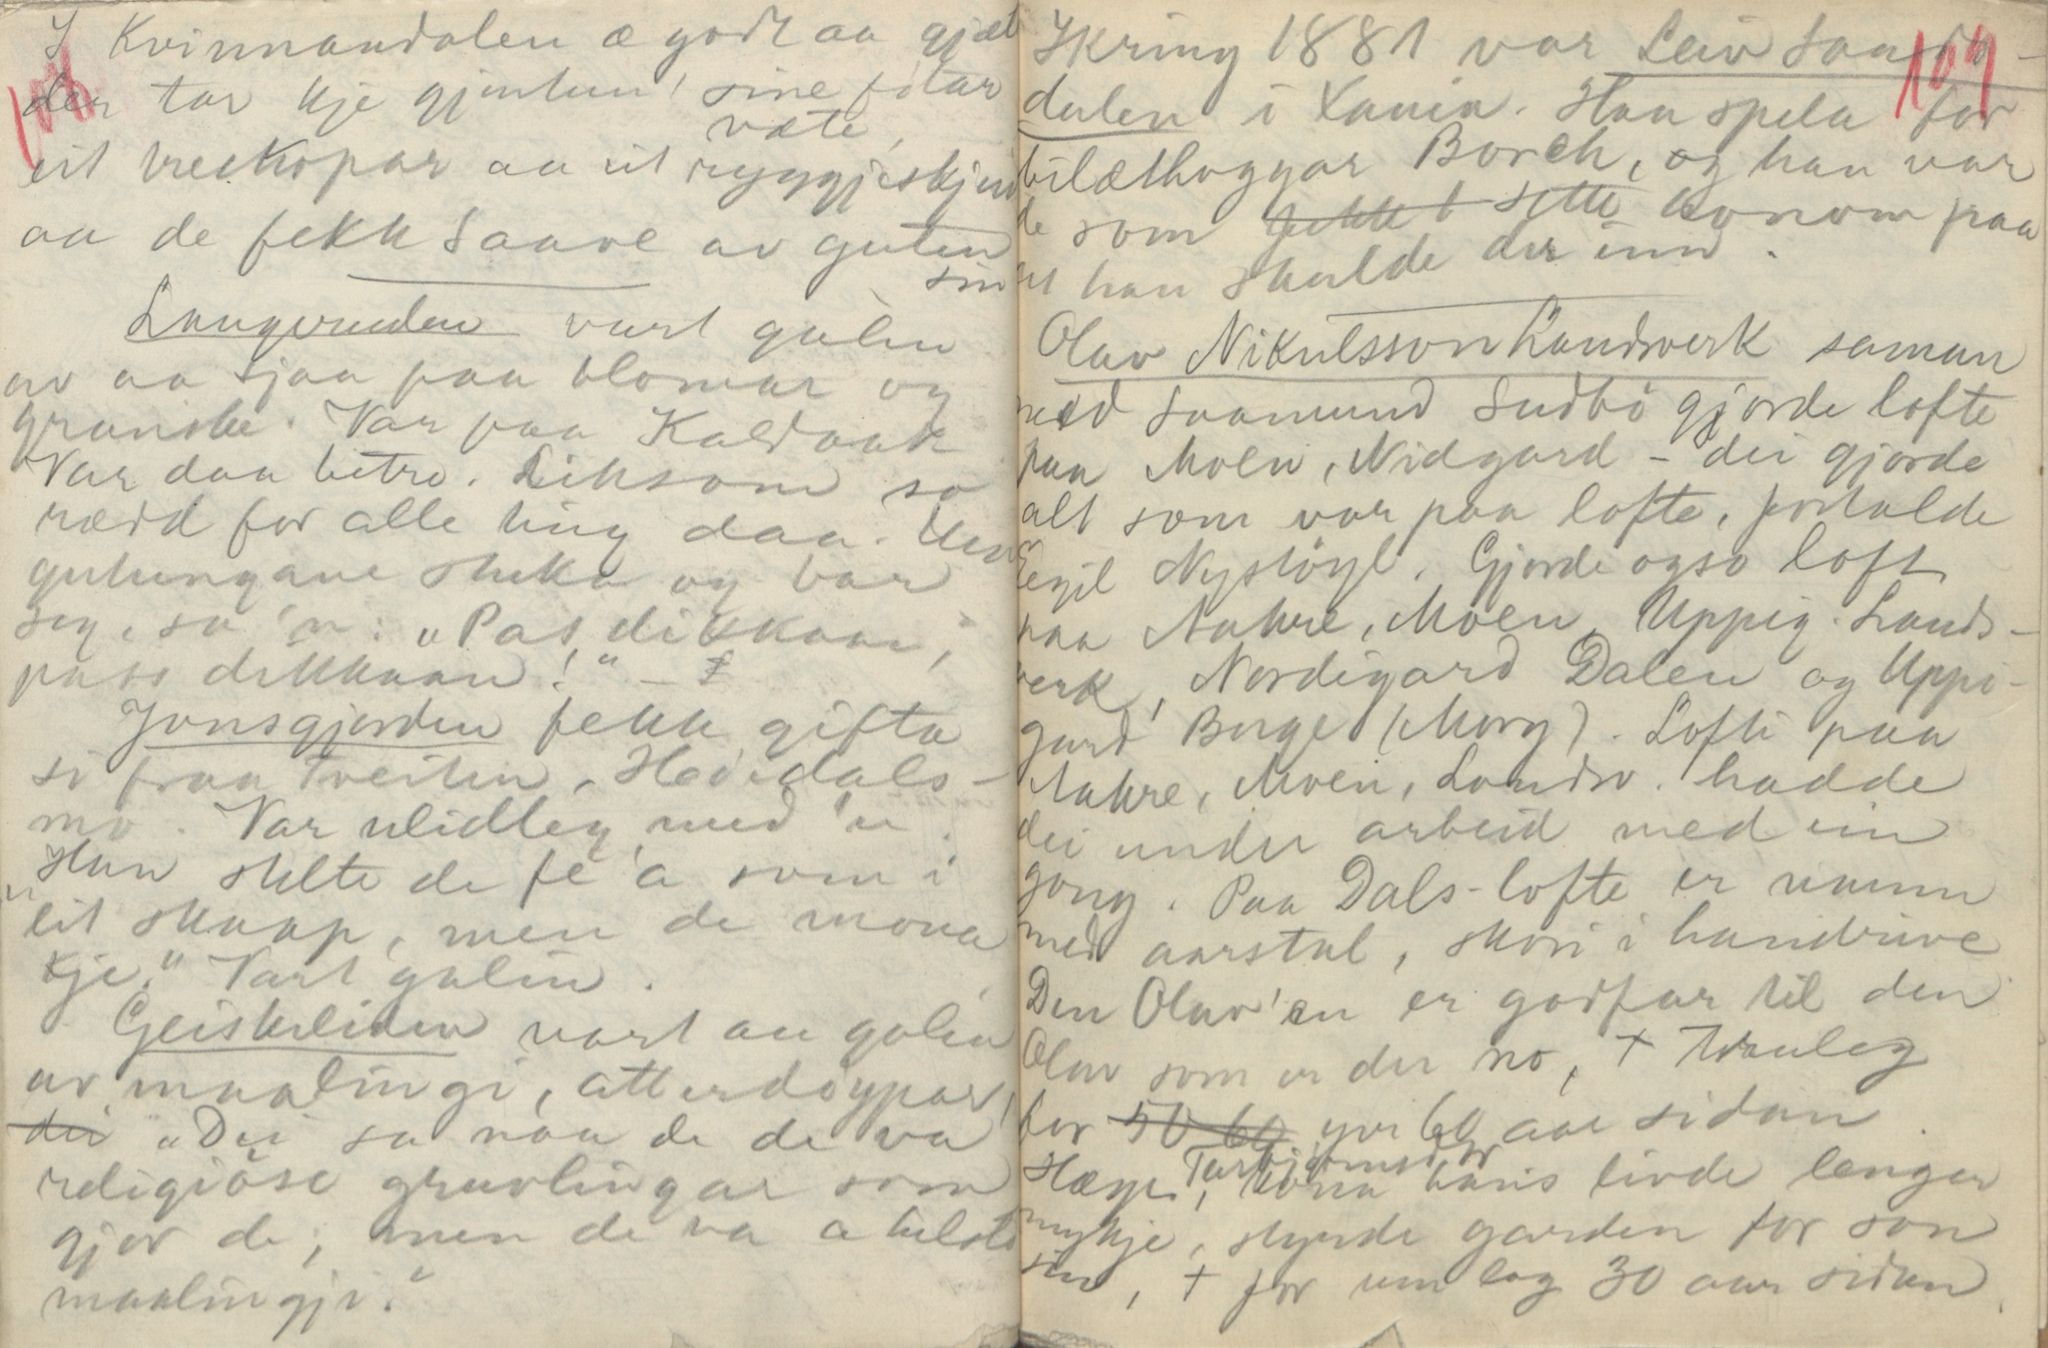 I Kvinnandalen æ godt aa gjæt
der tar kje gjenten sine fötar
væte,
eit treskopar aa eit ryggjeskjin
aa de fekk Saave av guten
sin
Langeruden vart galen
av aa sjaa paa blomar og
granska. Var paa Kaldaak
Var daa betre. Liksom so
rædd for alle ting daa. Um
gutungane skeka og bar
seg, sa 'n: „Pas dikkaan,
pass dikkaan!" –
Jonsgjorden fekk gifta
si fraa Tveiten, Heiedals-
mo. Var ulidleg med 'n.
Han stelte de fe 'a som i
„eit skaap, men de mona
kje." Vart galin.
Geiskeliden vart au galin
av maalingi, atterdöypar,
dei „Dei sa naa de de va
religiöse gruvlingar som
gjor de, men de va a helst
maalingji."
104
Ikring 1881 var Leiv Sanda-
dalen i Xania. Han spela for
bilæthoggar Borch, og han var
de som fekk t sette honom paa
at han skulde der inn.
Olav Nikulsson Landsverk saman
med Saamund Sudbö gjorde lofte
paa Moen, Nidgard – dei gjorde
alt som var paa lofte, fortalde
Eegil Nystöyl. Gjorde ogso loft
paa Aakre, Moen, Uppig. Lands-
verk, Nordigard Dalen og Uppi-
gard Berge (Morg). Lofti paa
Aakre, Moen, Landsv. hadde
dei under arbeid med ein
gong. Paa Dals-lofte er namn
med aarstal, skori i handrive
Den Olav'en er godfar til den
Olav som er der no, + truleg
for 50 60 yvi 60 aar sidan.
Tarbjørnsdtr
Hæge, kona hans livde lenger
mykje, styrde garden for son
sin, + for um lag 30 aar sidan.